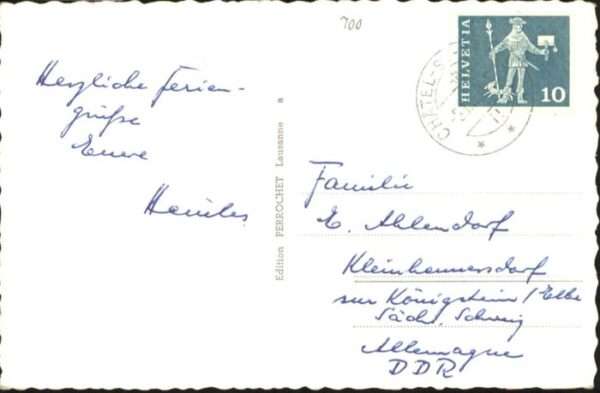 700
HELVETIA
10
CHÂTEL-S
Herzliche Ferien-
grüße
Eure
Edition PERROCHET Lausanne a
Familie
E. Ahlendorf
Kleinhennersdorf
zur Königstein / Elbe
Sächs. Schweiz
Allemagne
DDR